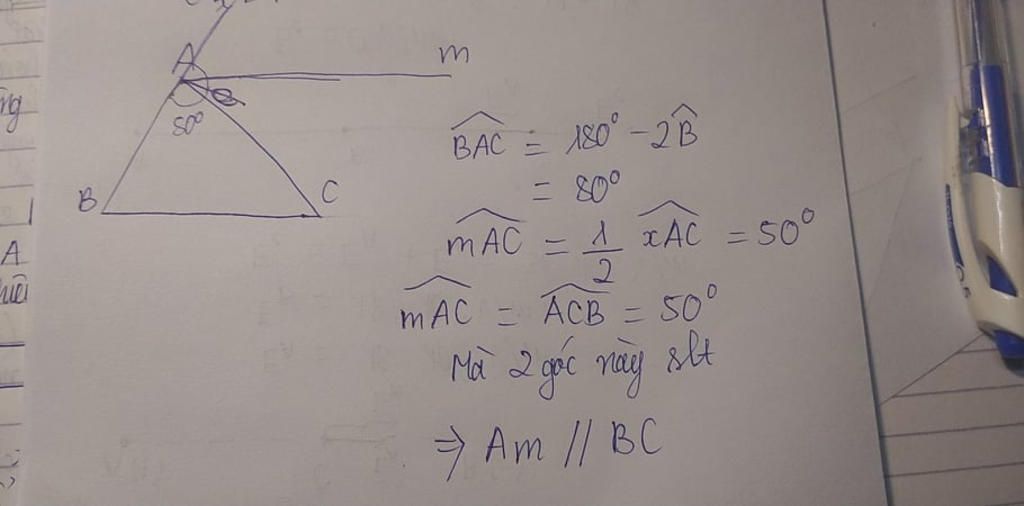 A
m
50°
B
C
BAC = 180° - 2B
= 80°
mAC = 1/2 xAC = 50°
mAC = ACB = 50°
Mà 2 góc này slt
=> Am // BC
A